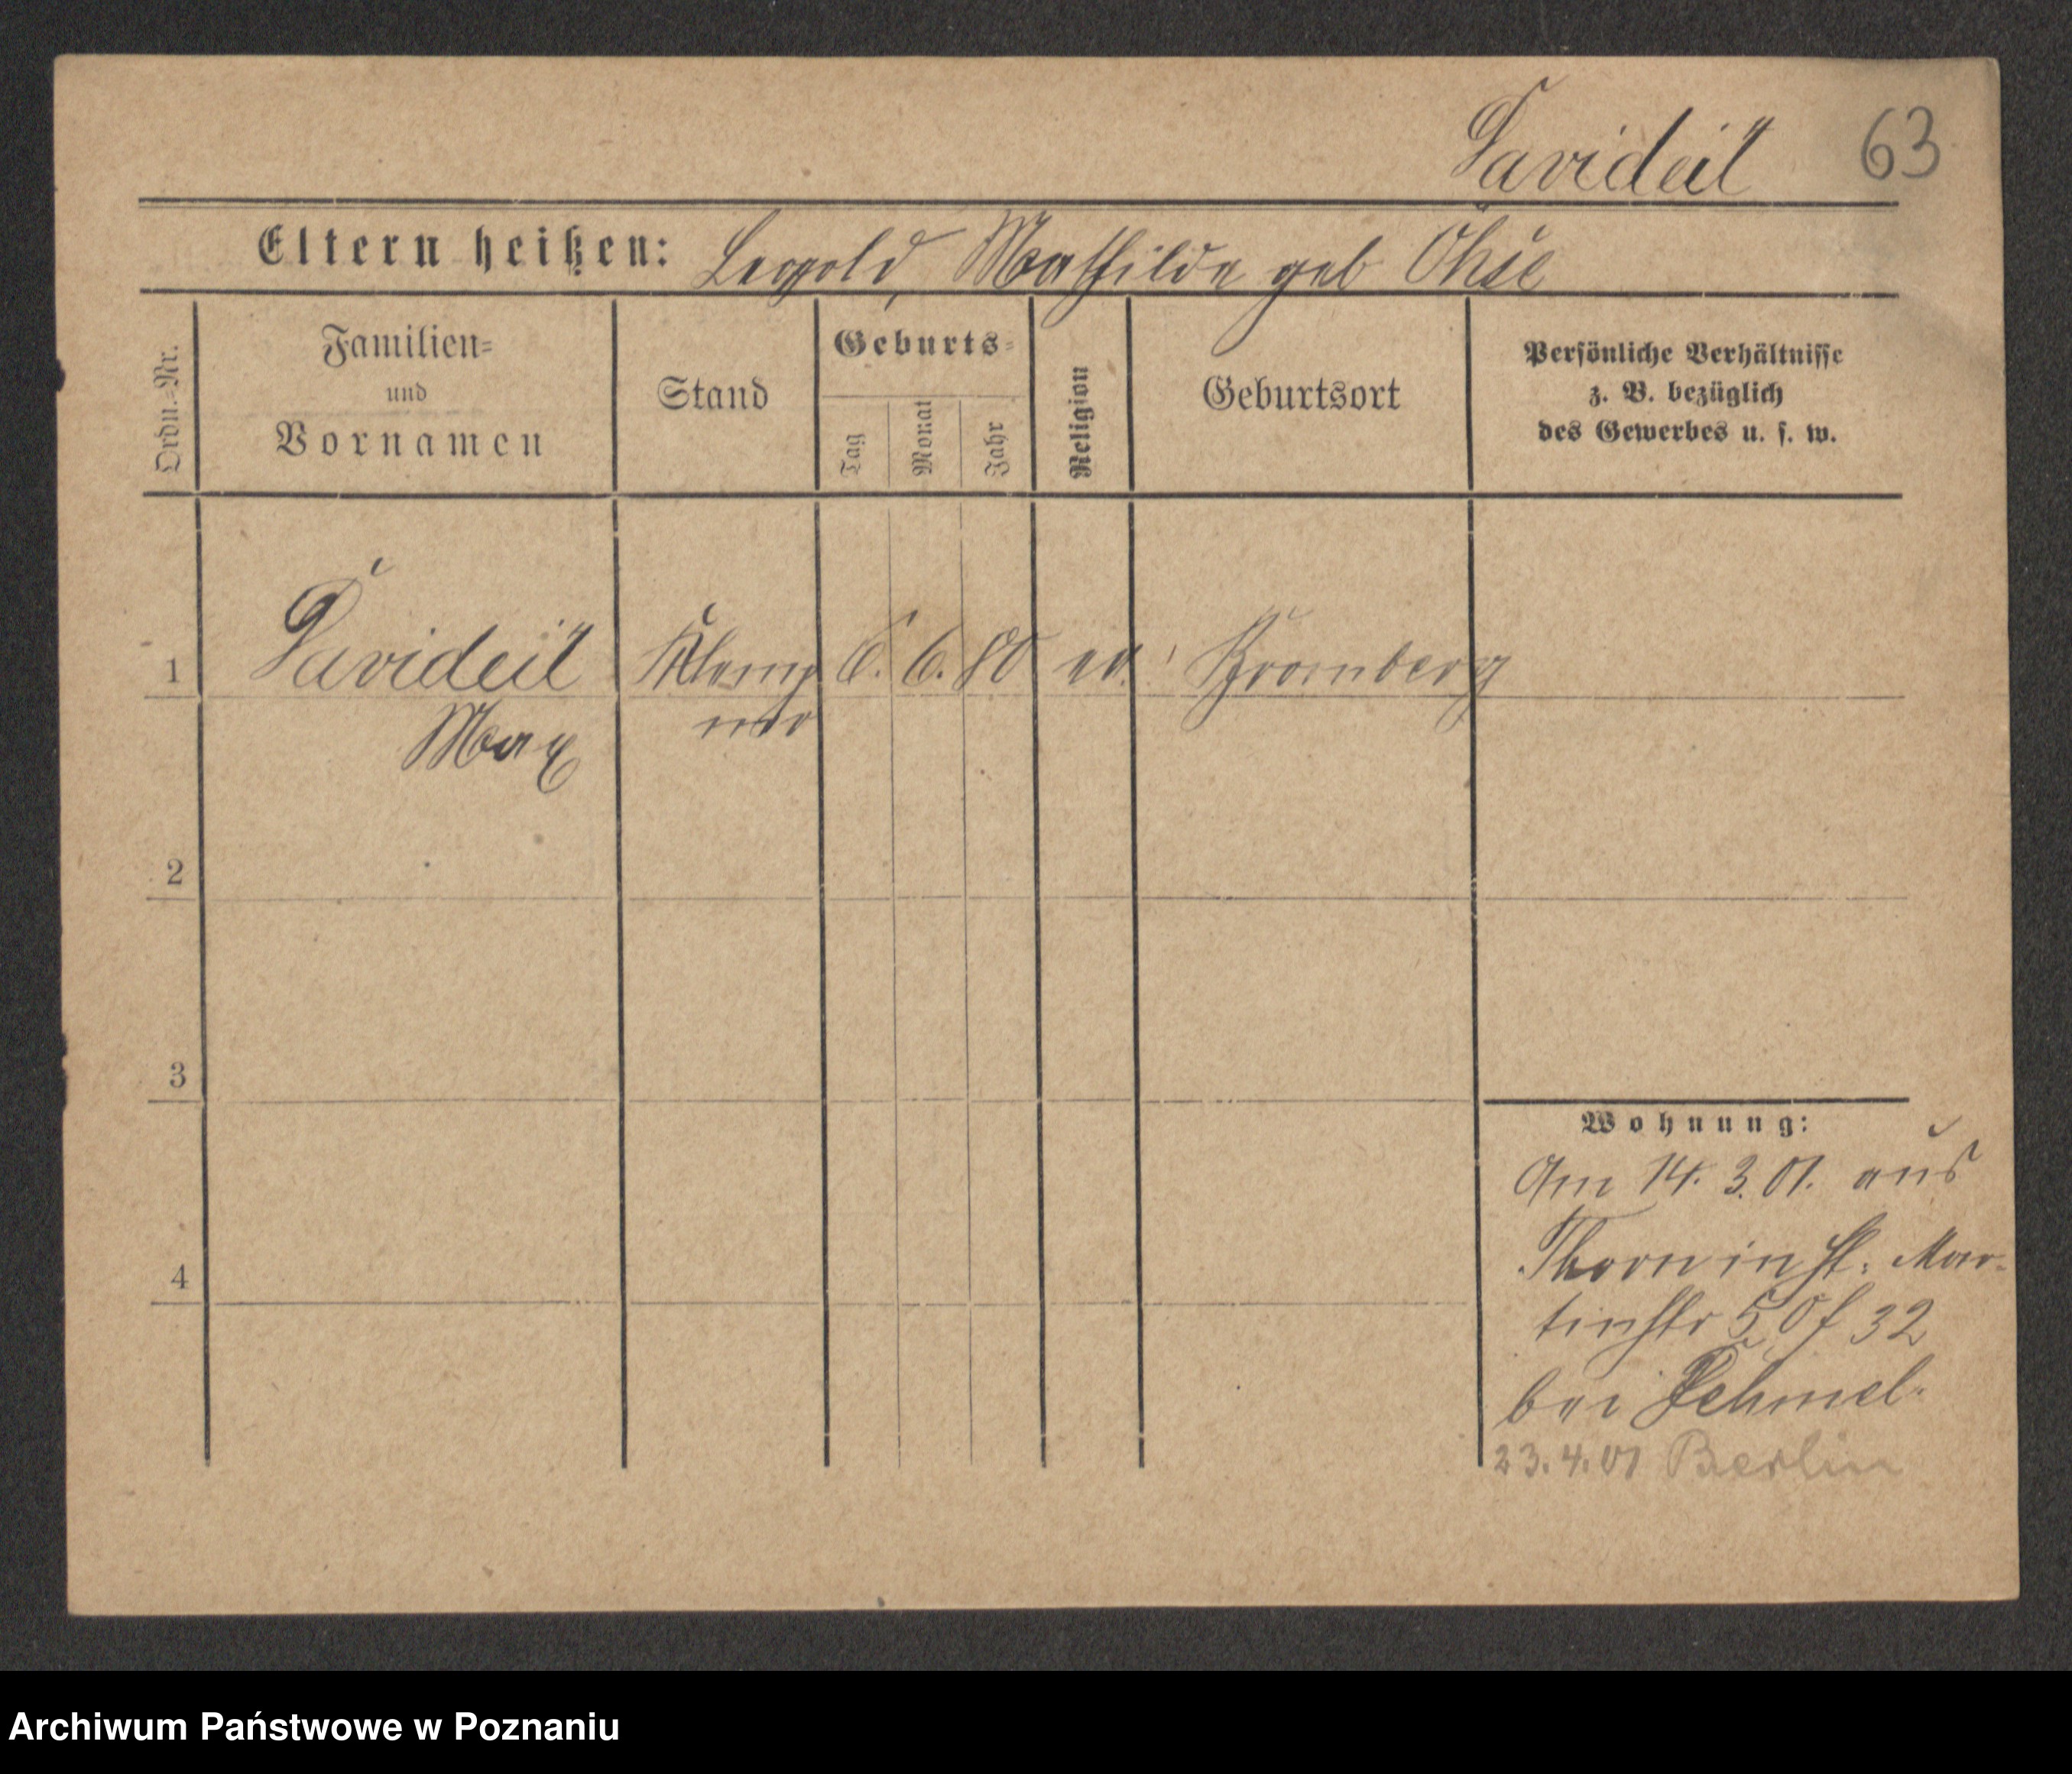 Davideit 63
Eltern heißen: Leopold, Mathilde geb Ohse
Ordn.-Nr.
Familien-
und
Vornamen
Stand
Geburts-
Tag
Monat
Jahr
Religion
Geburtsort
Persönliche Verhältnisse
z. B. bezüglich
des Gewerbes u. s. w.
1 Davideit Klemp 6. 6. 80 ev. Bromberg
Max ner
2
3
4
Wohnung:
Am 14. 3. 01. aus
Thorn in St. Mar-
tinstr 32
bei Dehmel.
23.4.01 Berlin
Archiwum Państwowe w Poznaniu